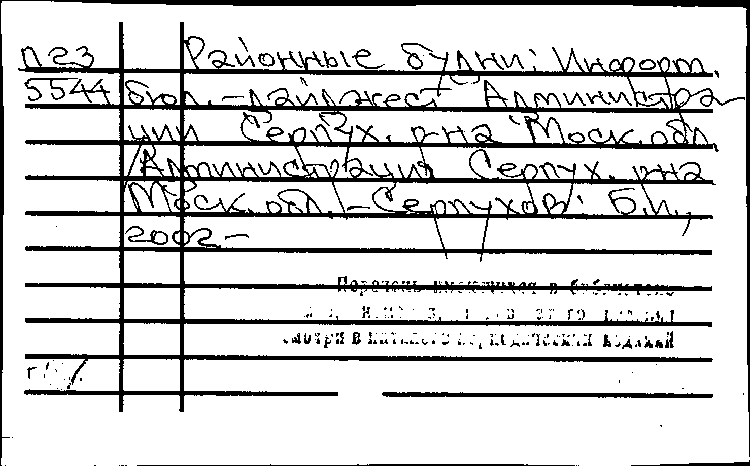 П23 Районные будни: Информ.
5544 бюл.-дайджест Администра-
ции Серпух. р-на Моск. обл.
/Администрация Серпух. р-на
Моск. обл. - Серпухов: Б.и.,
2002-
Перечень имеющихся в библиотеке
смотри в каталоге периодических изданий